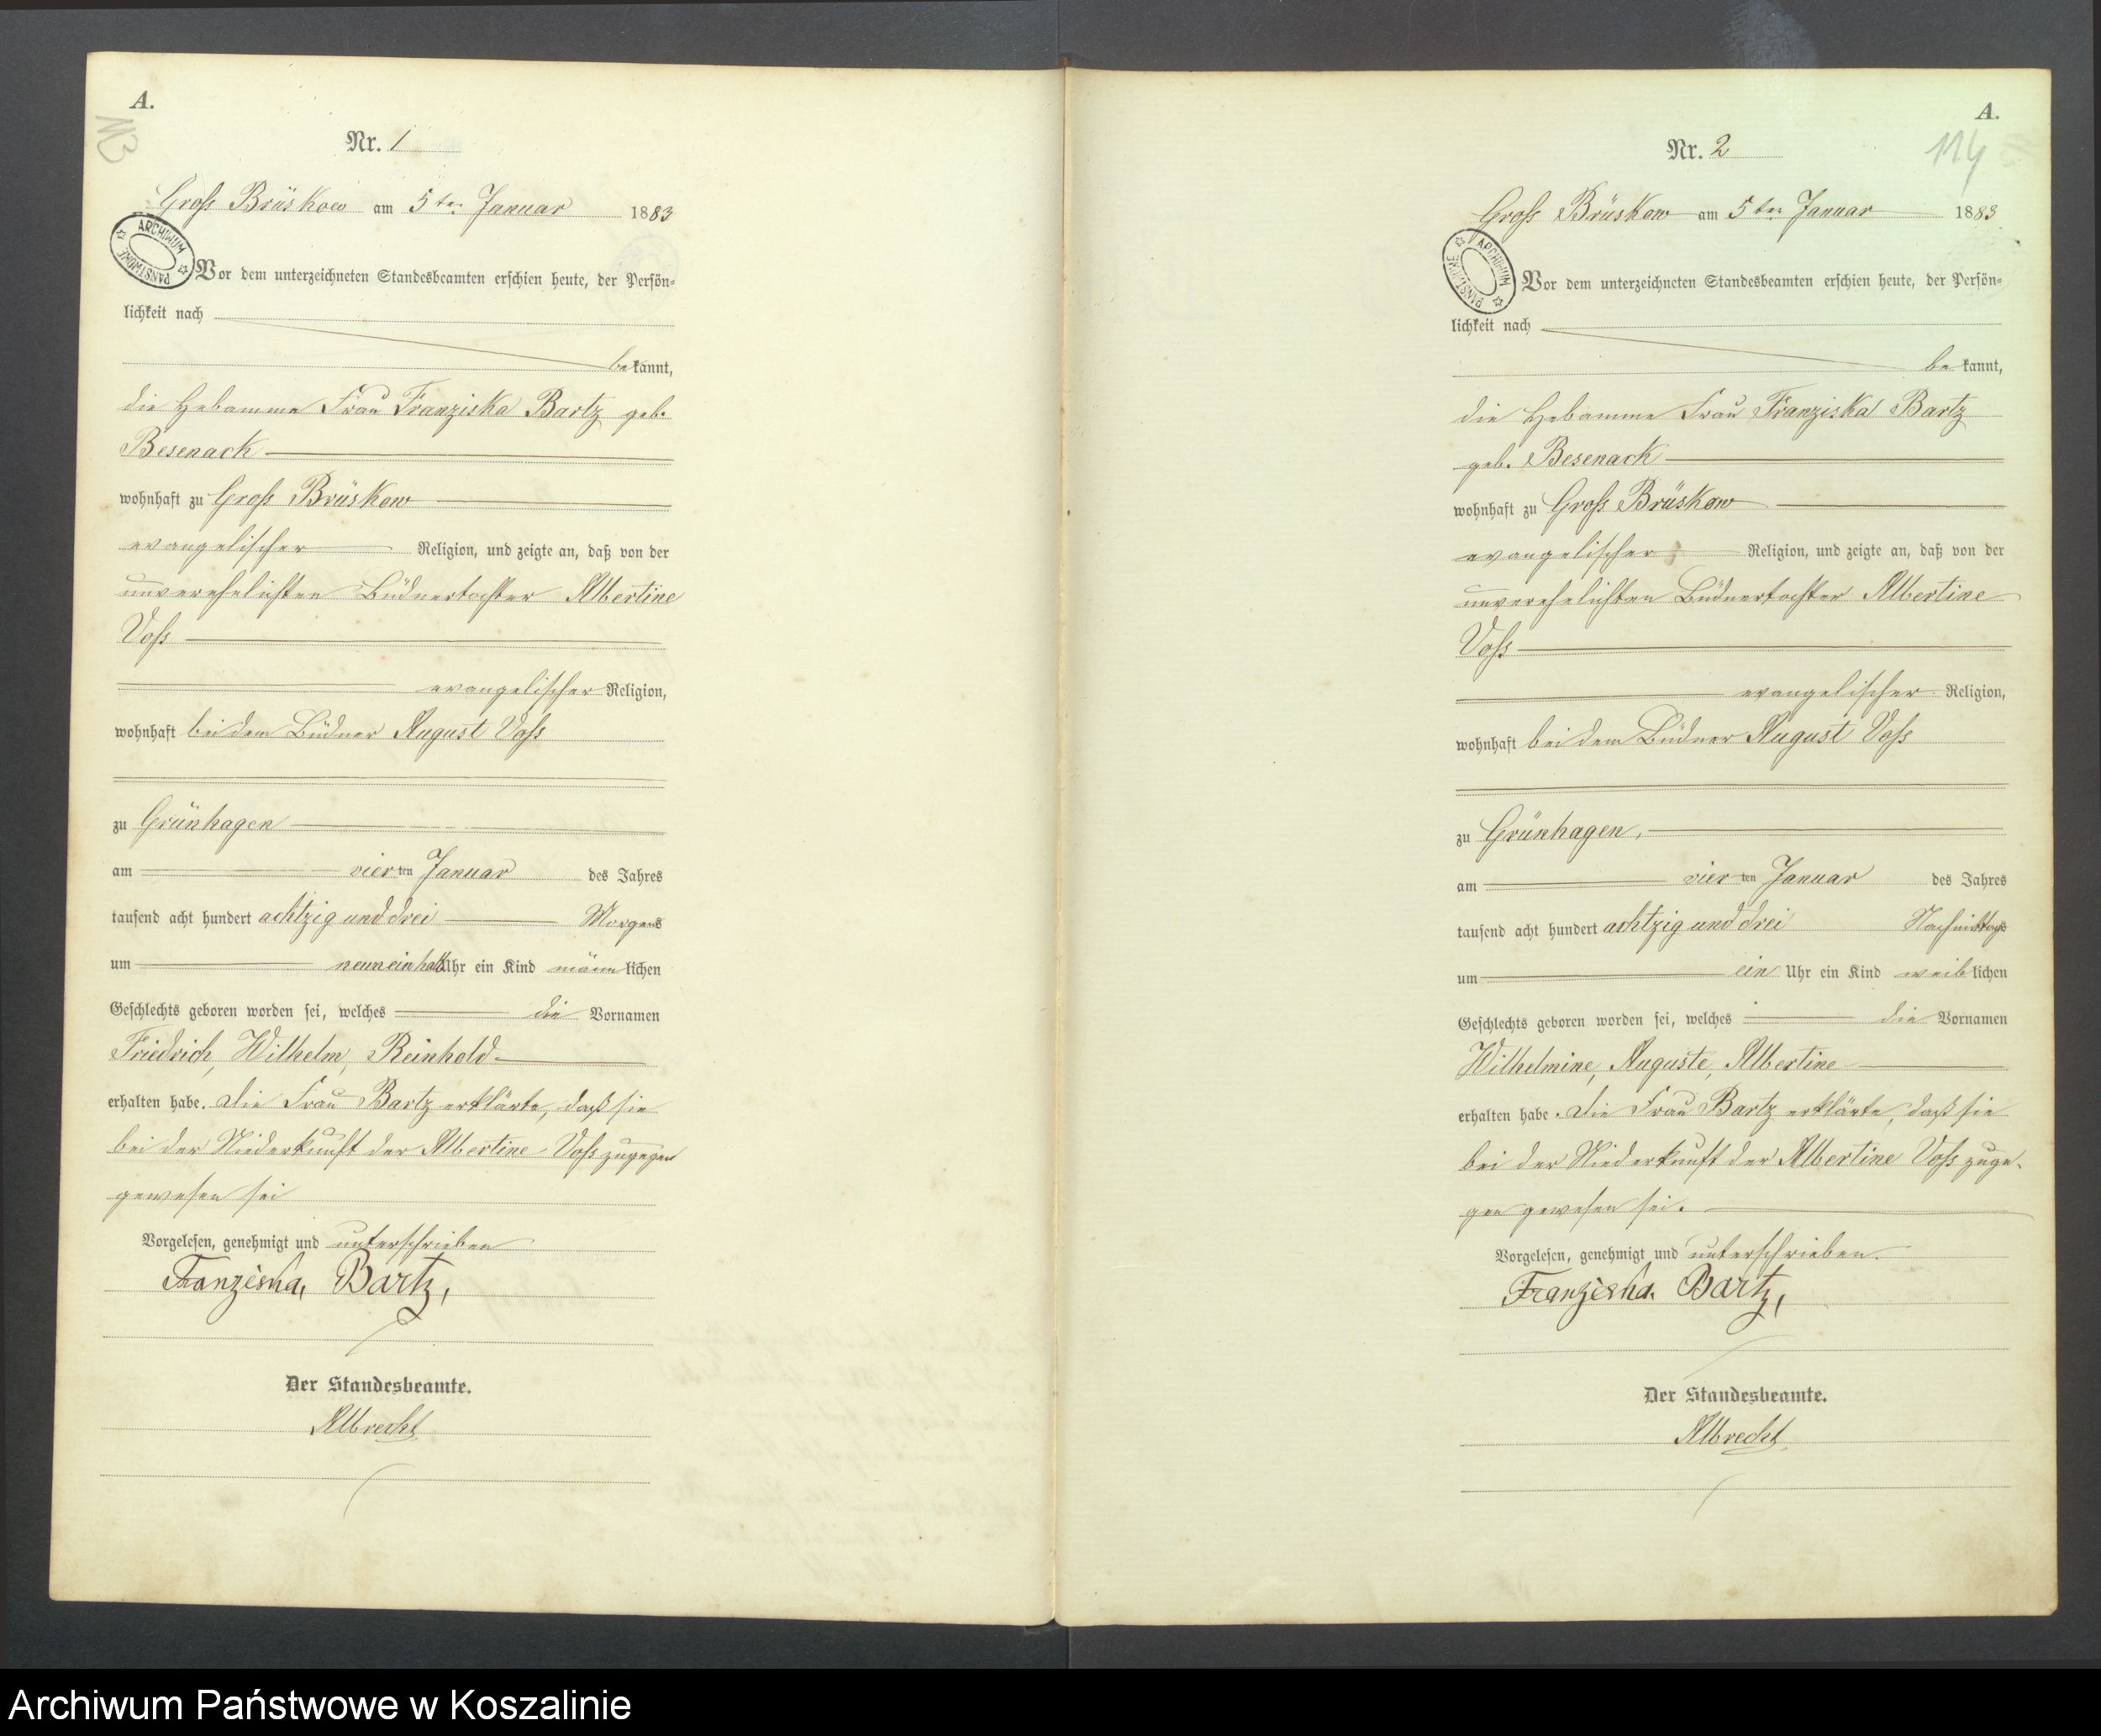 A.
113
Nr. 1
Groß Brüskow am 5ten Januar 1883
ARCHIWUM PAŃSTWOWE
Vor dem unterzeichneten Standesbeamten erschien heute, der Persön-
lichkeit nach
bekannt,
die Hebamme Frau Franziska Bartz geb.
Besenack
wohnhaft zu Groß Brüskow
evangelischer Religion, und zeigte an, daß von der
unverehelichten Büdnertochter Albertine
Voß
evangelischer Religion,
wohnhaft bei dem Büdner August Voß
zu Grünhagen
am vierten Januar des Jahres
tausend acht hundert achtzig und drei Morgens
um neuneinhalb Uhr ein Kind männlichen
Geschlechts geboren worden sei, welches die Vornamen
Friedrich, Wilhelm, Reinhold
erhalten habe. Die Frau Bartz erklärte, daß sie
bei der Niederkunft der Albertine Voß zugegen
gewesen sei
Vorgelesen, genehmigt und unterschrieben
Franziska Bartz,
Der Standesbeamte.
Albrecht
A.
114
Nr. 2
Groß Brüskow am 5ten Januar 1883
ARCHIWUM PAŃSTWOWE
Vor dem unterzeichneten Standesbeamten erschien heute, der Persön-
lichkeit nach
bekannt,
die Hebamme Frau Franziska Bartz
geb. Besenack
wohnhaft zu Groß Brüskow
evangelischer Religion, und zeigte an, daß von der
unverehelichten Büdnertochter Albertine
Voß
evangelischer Religion,
wohnhaft bei dem Büdner August Voß
zu Grünhagen,
am vierten Januar des Jahres
tausend acht hundert achtzig und drei Nachmittags
um ein Uhr ein Kind weiblichen
Geschlechts geboren worden sei, welches die Vornamen
Wilhelmine, Auguste, Albertine
erhalten habe. Die Frau Bartz erklärte, daß sie
bei der Niederkunft der Albertine Voß zuge-
gen gewesen sei.
Vorgelesen, genehmigt und unterschrieben.
Franziska Bartz,
Der Standesbeamte.
Albrecht
Archiwum Państwowe w Koszalinie